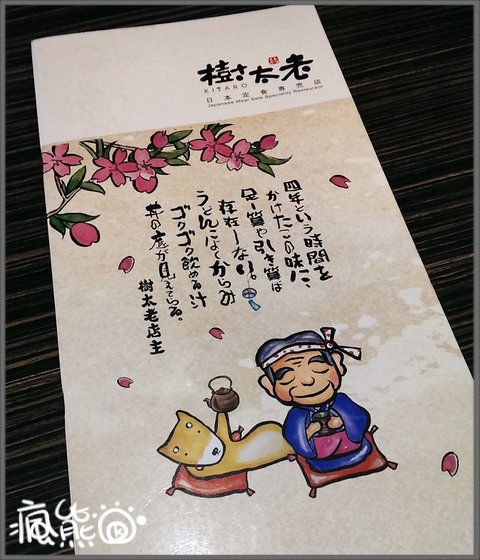 樹太老
KITARO
日本定食専売店
Japanese Meal Sets Speciality Restaurant
四年という時間を
かけたこの味に、
足し算や引き算は
存在しない。
うどんによくからみ
ゴクゴク飲める汁
丼の底が見えている。
樹太老店主
瘋熊